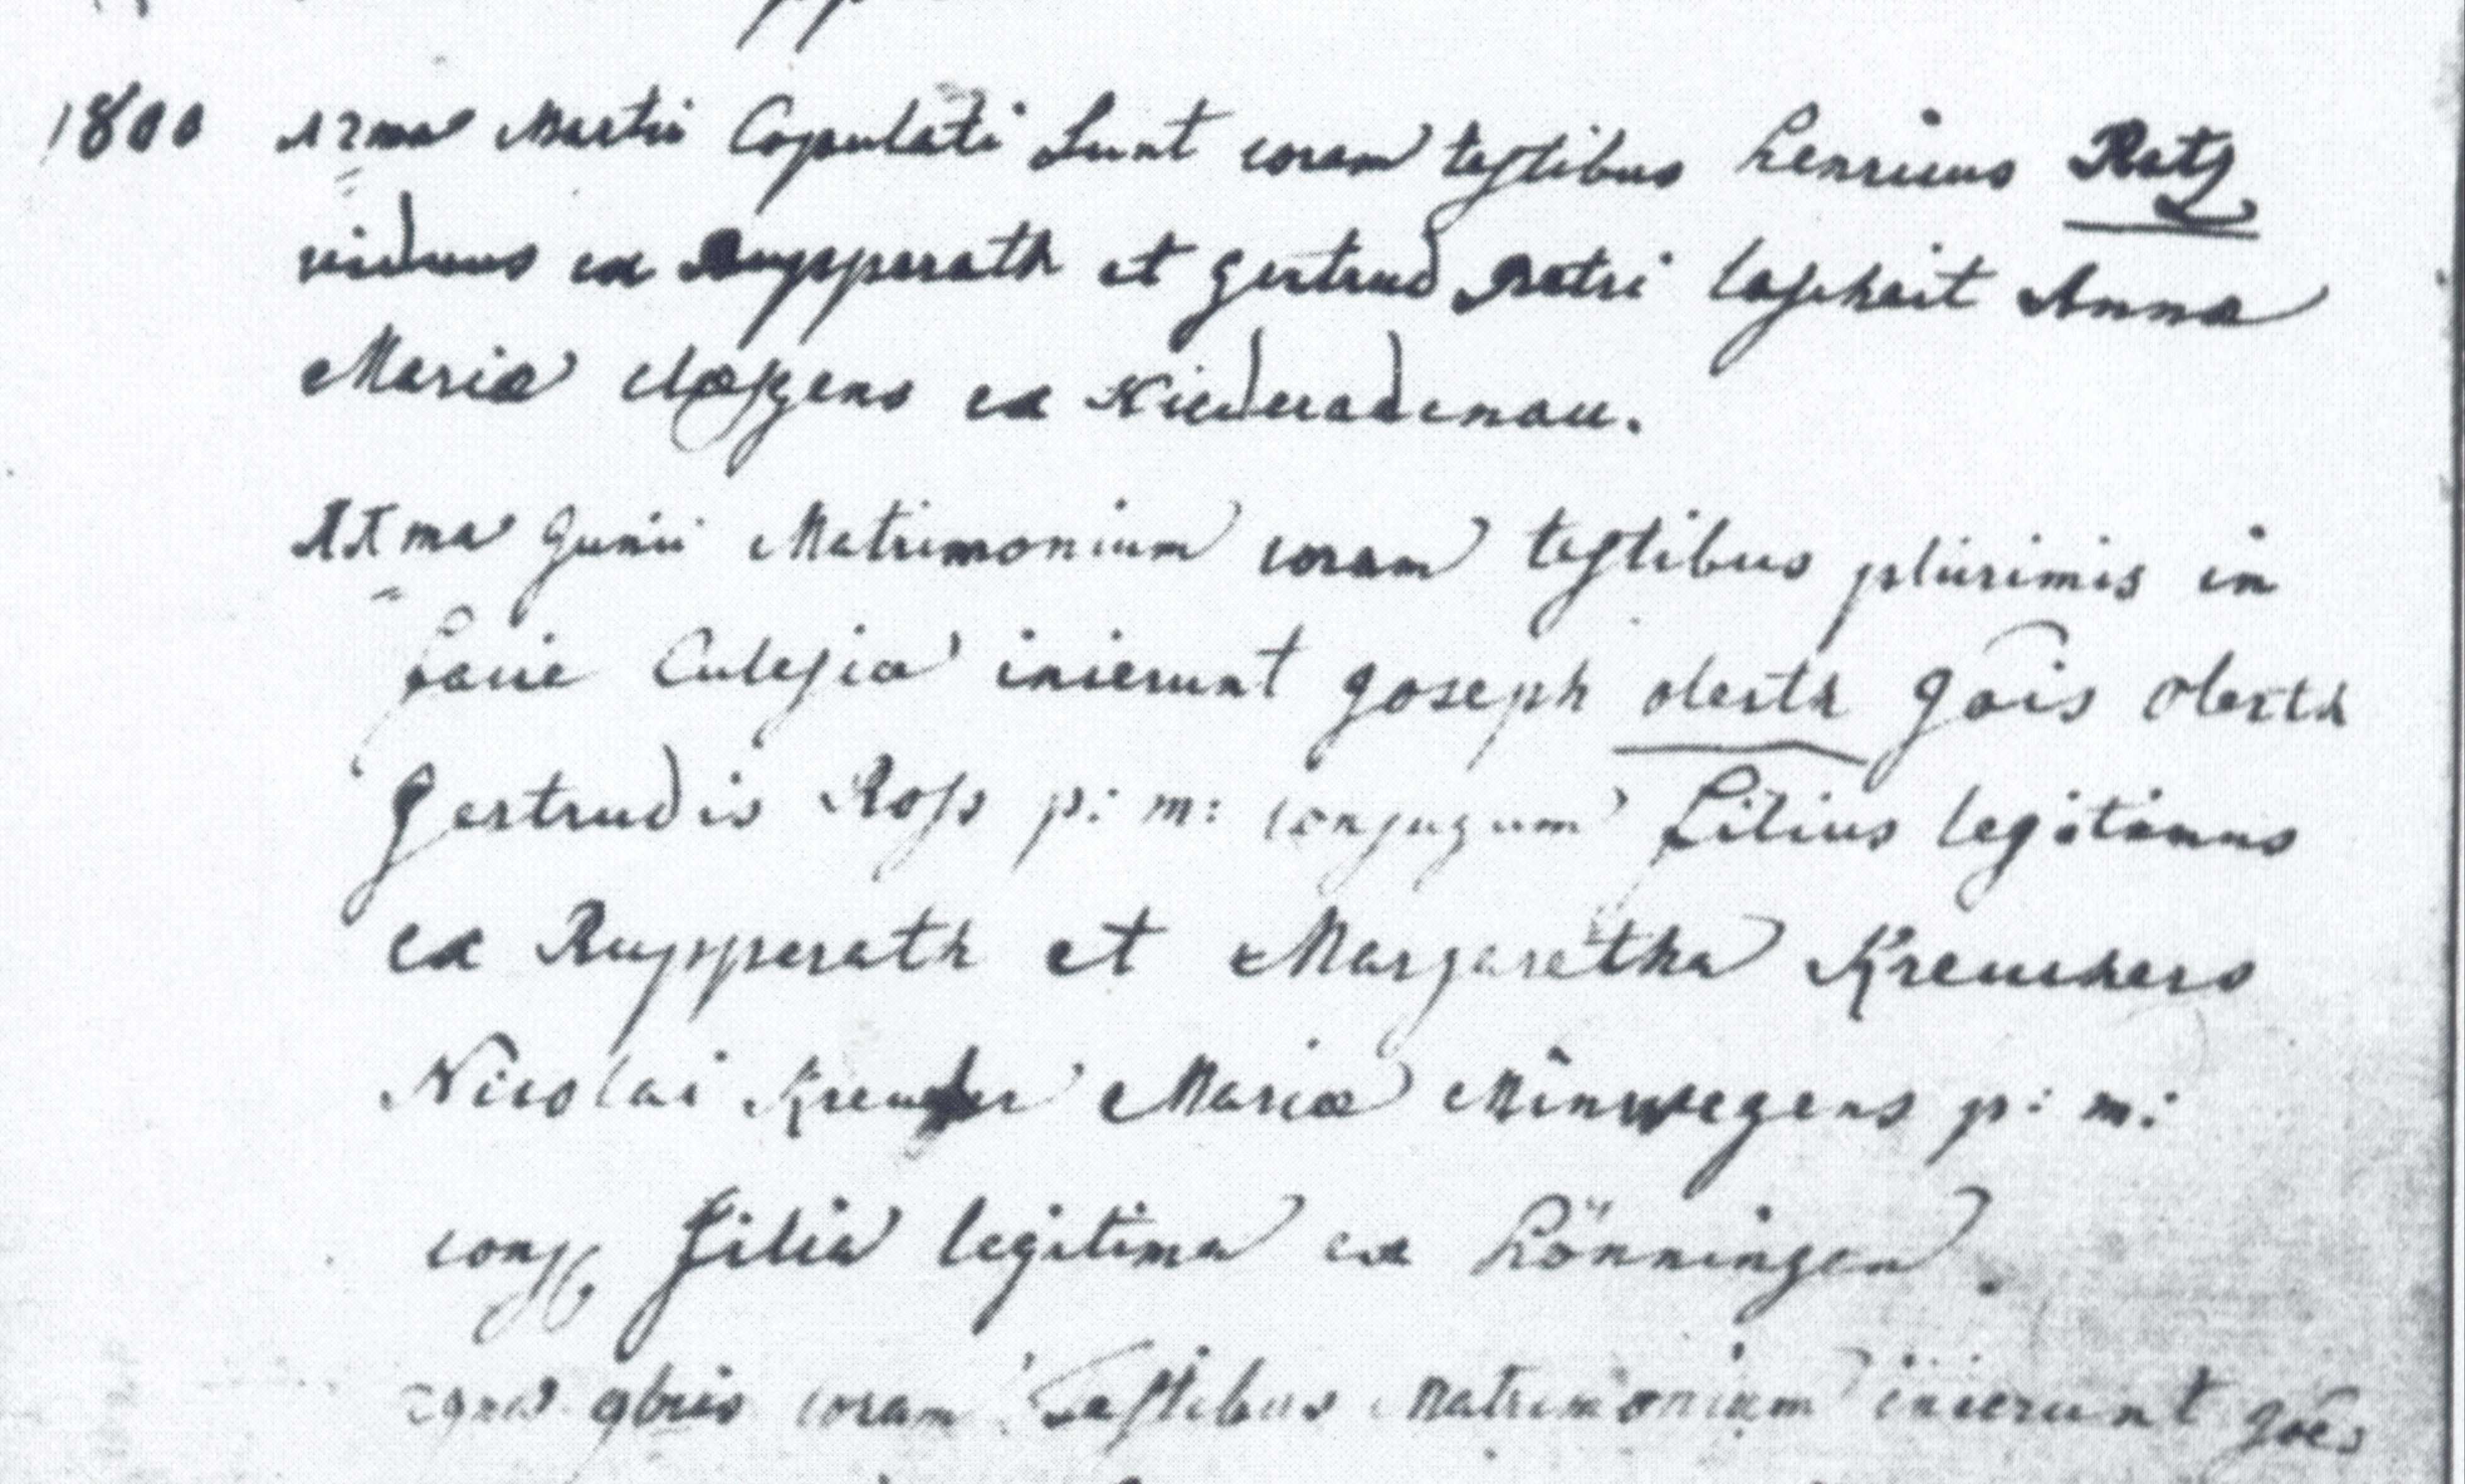 1800 12ma Martii Copulati Sunt coram testibus henricus Ratz
viduus ex Rupperath et gertrud Petri lascheit Anna
Maria Claesgens ex Niederadenau.
11ma Junii Matrimonium coram testibus plurimis in
facie Eclesiae inierunt Joseph olerth Jois olerth
Gertrudis Ross p: m: conjugum filius legitimus
ex Rupperath et Margaretha Kreuchers
Nicolai Mariae Minwegens p: m:
conj filia legitima ex hönningen.
9bris coram Testibus Matrimonium inierunt Joes